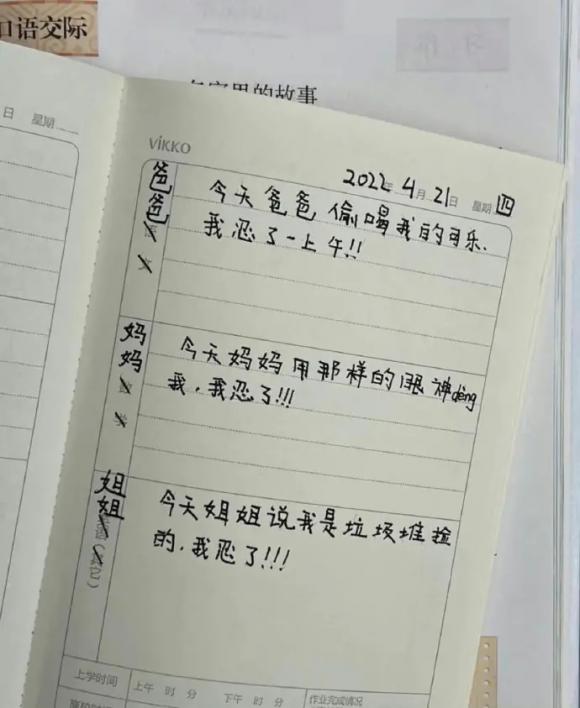 口语交际
名字里的故事
日 星期
VIKKO
2022年4月21日 星期四
爸爸
今天爸爸偷喝我的可乐.
我忍了一上午!!
妈妈
今天妈妈用那样的眼神dèng
我.我忍了!!!
姐姐
今天姐姐说我是垃圾堆捡
的.我忍了!!!
上学时间
上午 时 分 下午 时 分
作业完成情况